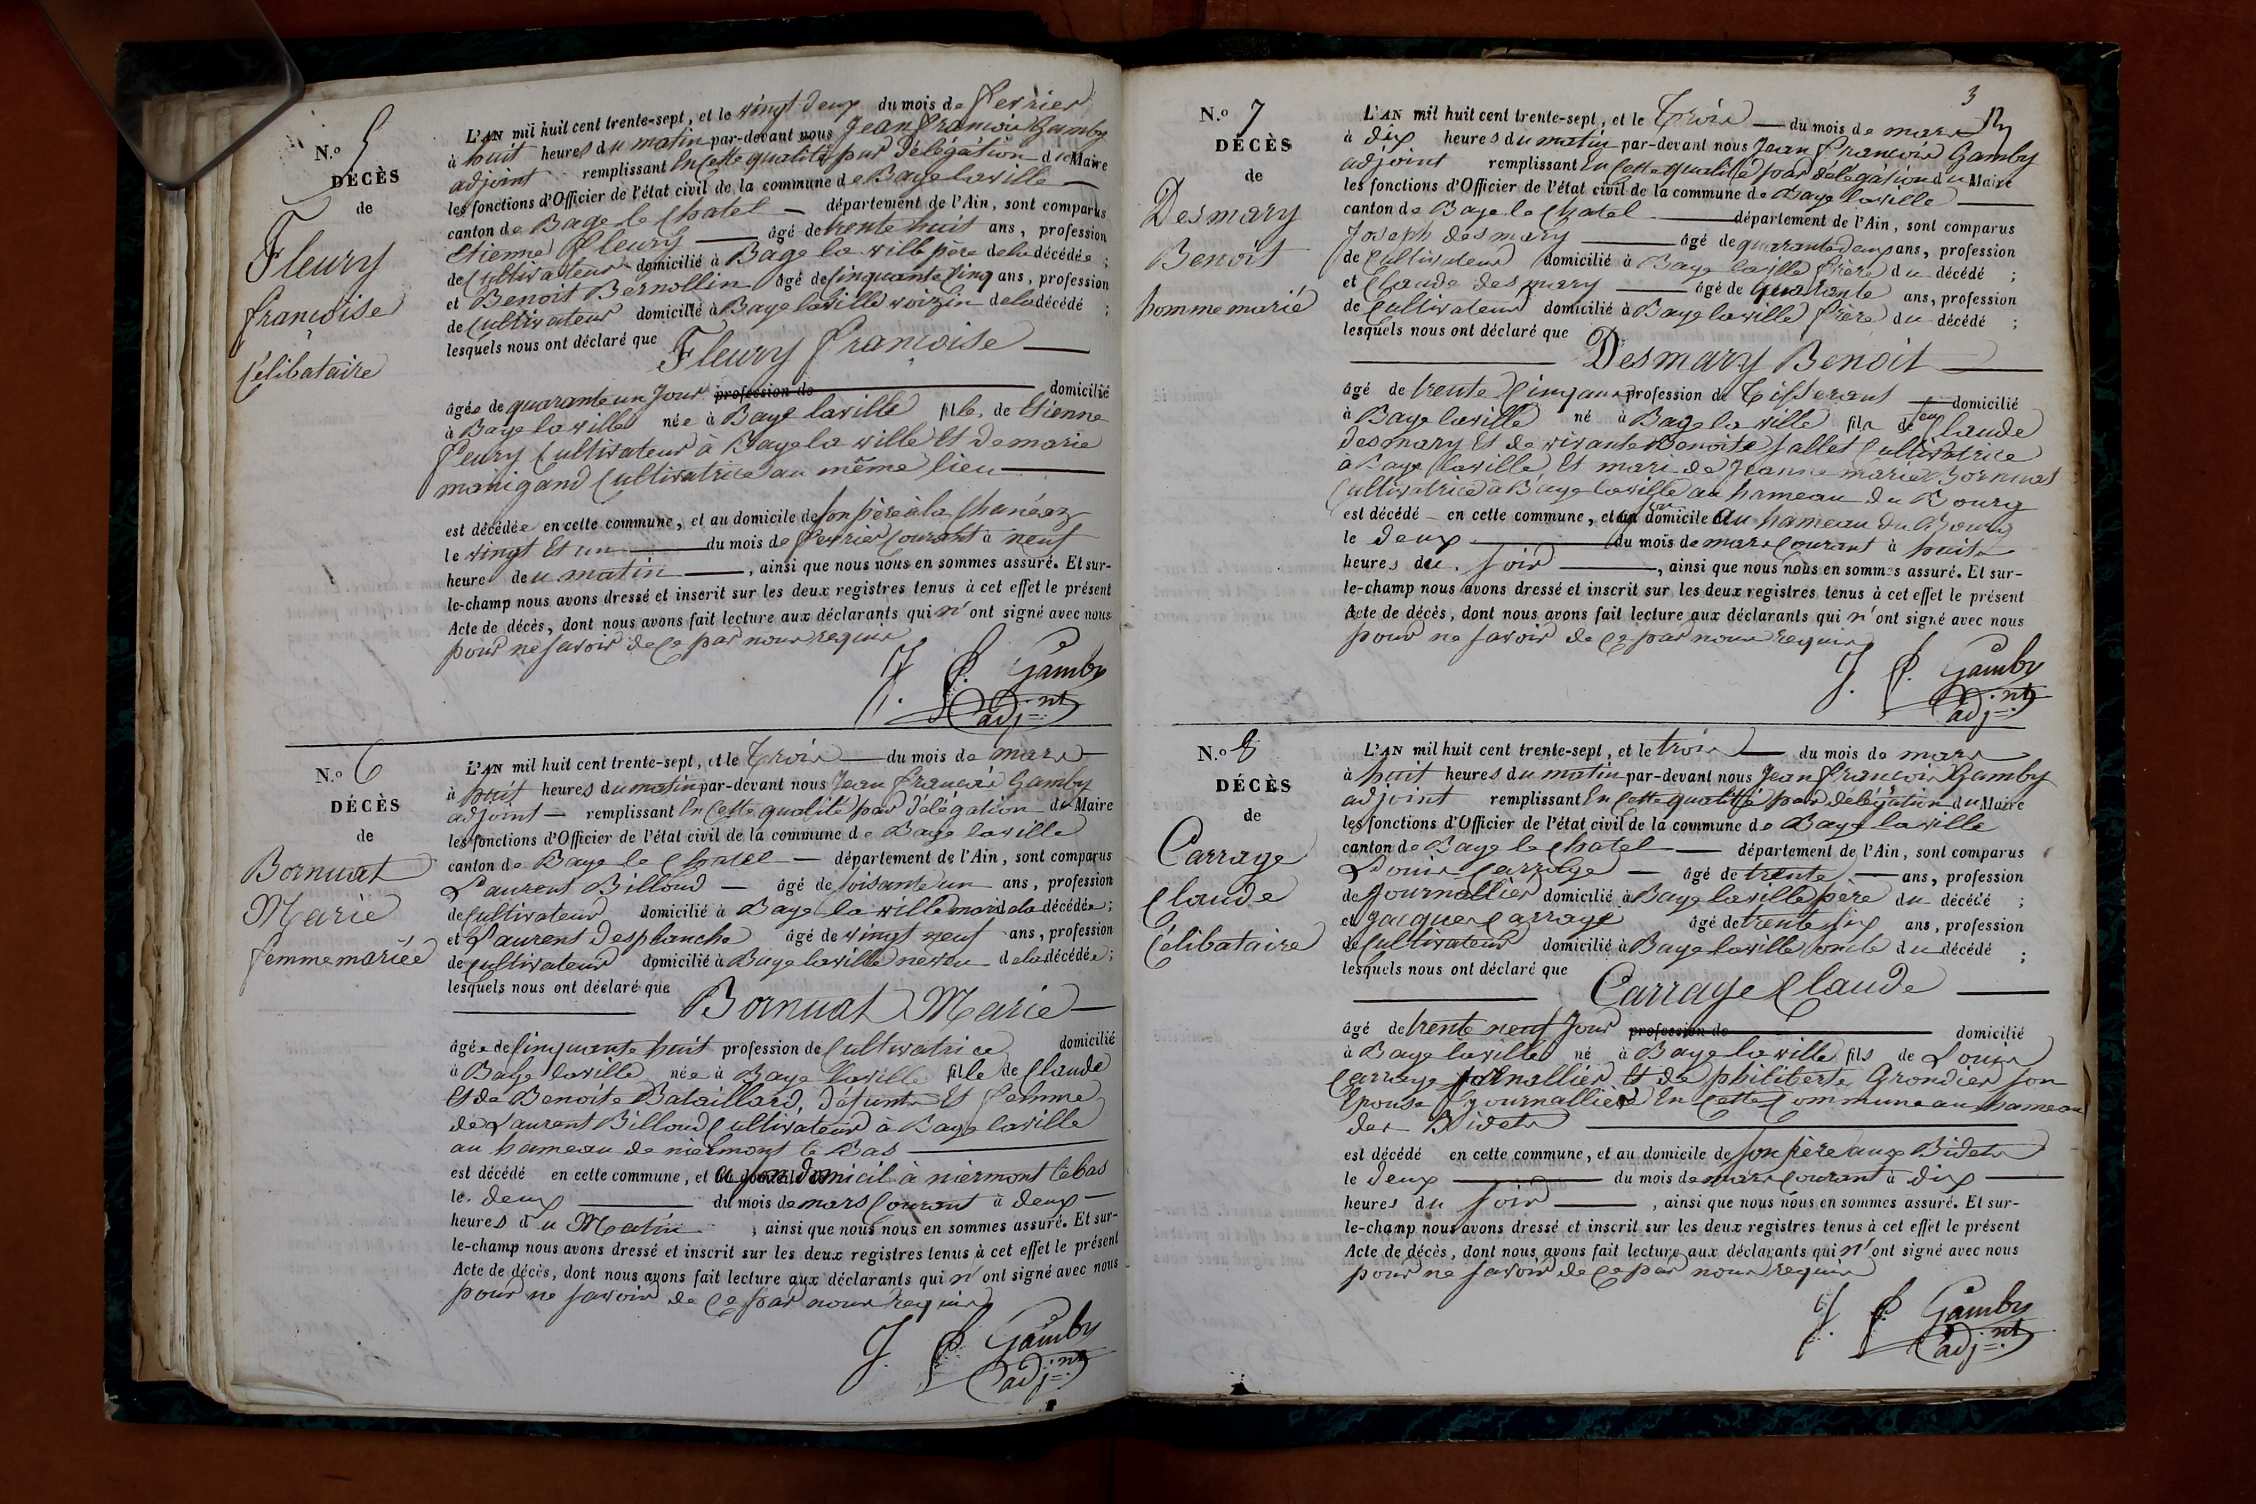 N.º 5
DÉCÈS
de
Fleury
françoise
Célibataire
L'AN mil huit cent trente-sept, et le vingt deux du mois de fevrier
à huit heures du matin par-devant nous Jean françois Gamby
adjoint remplissant En Cette qualité par délégation du Maire
les fonctions d'Officier de l'état civil de la commune de Bage la ville
canton de Bage le Chatel département de l'Ain, sont comparus
Etienne Fleury âgé de trente huit ans, profession
de Cultivateur domicilié à Bage la ville père de la décédée ;
et Benoit Bernollin âgé de Cinquante Cinq ans, profession
de Cultivateur domicilié à Bage la ville voizin de la décédé ;
lesquels nous ont déclaré que Fleury françoise
âgée de quarante un Jour profession de domicilié
à Bage la ville née à Bage la ville fille de Etienne
fleury Cultivateur à Bage la ville Et de marie
manigand Cultivatrice au même lieu
est décédée en cette commune, et au domicile de son père à la Chanéaz
le vingt Et un du mois de fevrier Courant à neuf
heure de u matin, ainsi que nous nous en sommes assuré. Et sur-
le-champ nous avons dressé et inscrit sur les deux registres tenus à cet effet le présent
Acte de décès, dont nous avons fait lecture aux déclarants qui n' ont signé avec nous
pour ne savoir de Ce par nous requis
J. f. Gamby
adj.nt
N.º 6
DÉCÈS
de
Bornuat
Marie
femme mariée
L'AN mil huit cent trente-sept, et le trois du mois de mars
à huit heures du matin par-devant nous Jean françois Gamby
adjoint remplissant En Cette qualité par délégation du Maire
les fonctions d'Officier de l'état civil de la commune de Bage la ville
canton de Bage le Chatel département de l'Ain, sont comparus
Laurent Billoud âgé de soisante un ans, profession
de Cultivateur domicilié à Bage la ville mari de la décédée ;
et Laurent Desplanche âgé de vingt neuf ans, profession
de Cultivateur domicilié à Bage la ville neveu de la décédée ;
lesquels nous ont déclaré que
Bornuat Marie
âgée de Cinquante huit profession de Cultivatrice domicilié
à Bage la ville née à Bage la ville fille de Claude
Et de Benoite Bataillard, défunts Et femme
de Laurent Billoud Cultivateur à Bage la ville
au hameau de niermont le Bas
est décédé en cette commune, et à son domicil à niermont le bas
le deux du mois de mars Courant à deux
heures du Matin, ainsi que nous nous en sommes assuré. Et sur-
le-champ nous avons dressé et inscrit sur les deux registres tenus à cet effet le présent
Acte de décès, dont nous avons fait lecture aux déclarants qui n' ont signé avec nous
pour ne savoir de Ce par nous requis
J. f. Gamby
adj.nt
3
N.º 7
DÉCÈS
de
Desmary
Benoit
homme marié
L'AN mil huit cent trente-sept, et le trois du mois de mars
à dix heures du matin par-devant nous Jean françois Gamby
adjoint remplissant En Cette qualité par délégation du Maire
les fonctions d'Officier de l'état civil de la commune de Bage la ville
canton de Bage le Chatel département de l'Ain, sont comparus
Joseph desmary âgé de quarante deux ans, profession
de Cultivateur domicilié à Bage la ville frère du décédé ;
et Claude desmary âgé de quarante ans, profession
de Cultivateur domicilié à Bage la ville frère du décédé ;
lesquels nous ont déclaré que
Desmary Benoit
âgé de trente Cinq ans profession de tisserant domicilié
à Bage la ville né à Bage la ville fils de feu Claude
desmary Et de vivante Benoite sallet Cultivatrice
à Bage la ville Et mari de Jeanne marie Bornuat
Cultivatrice à Bage la ville au hameau du Bourg
est décédé en cette commune, et à son domicile au hameau du Bourg
le deux du mois de mars Courant à huit
heures du soir, ainsi que nous nous en sommes assuré. Et sur-
le-champ nous avons dressé et inscrit sur les deux registres tenus à cet effet le présent
Acte de décès, dont nous avons fait lecture aux déclarants qui n' ont signé avec nous
pour ne savoir de Ce par nous requis
J. f. Gamby
adj.nt
N.º 8
DÉCÈS
de
Carrage
Claude
Célibataire
L'AN mil huit cent trente-sept, et le trois du mois de mars
à huit heures du matin par-devant nous Jean françois Gamby
adjoint remplissant En Cette qualité par délégation du Maire
les fonctions d'Officier de l'état civil de la commune de Bage la ville
canton de Bage le Chatel département de l'Ain, sont comparus
Louis Carrage âgé de trente ans, profession
de Journallier domicilié à Bage la ville père du décédé ;
et Jacques Carrage âgé de trente six ans, profession
de Cultivateur domicilié à Bage la ville oncle du décédé ;
lesquels nous ont déclaré que
Carrage Claude
âgé de trente neuf Jour profession de domicilié
à Bage la ville né à Bage la ville fils de Louis
Carrage Journallier Et de philiberte Grondier son
Epouse Journallière En Cette Commune au hameau
des Bidets
est décédé en cette commune, et au domicile de son père aux Bidets
le deux du mois de mars Courant à dix
heures du soir, ainsi que nous nous en sommes assuré. Et sur-
le-champ nous avons dressé et inscrit sur les deux registres tenus à cet effet le présent
Acte de décès, dont nous avons fait lecture aux déclarants qui n' ont signé avec nous
pour ne savoir de Ce par nous requis
J. f. Gamby
adj.nt